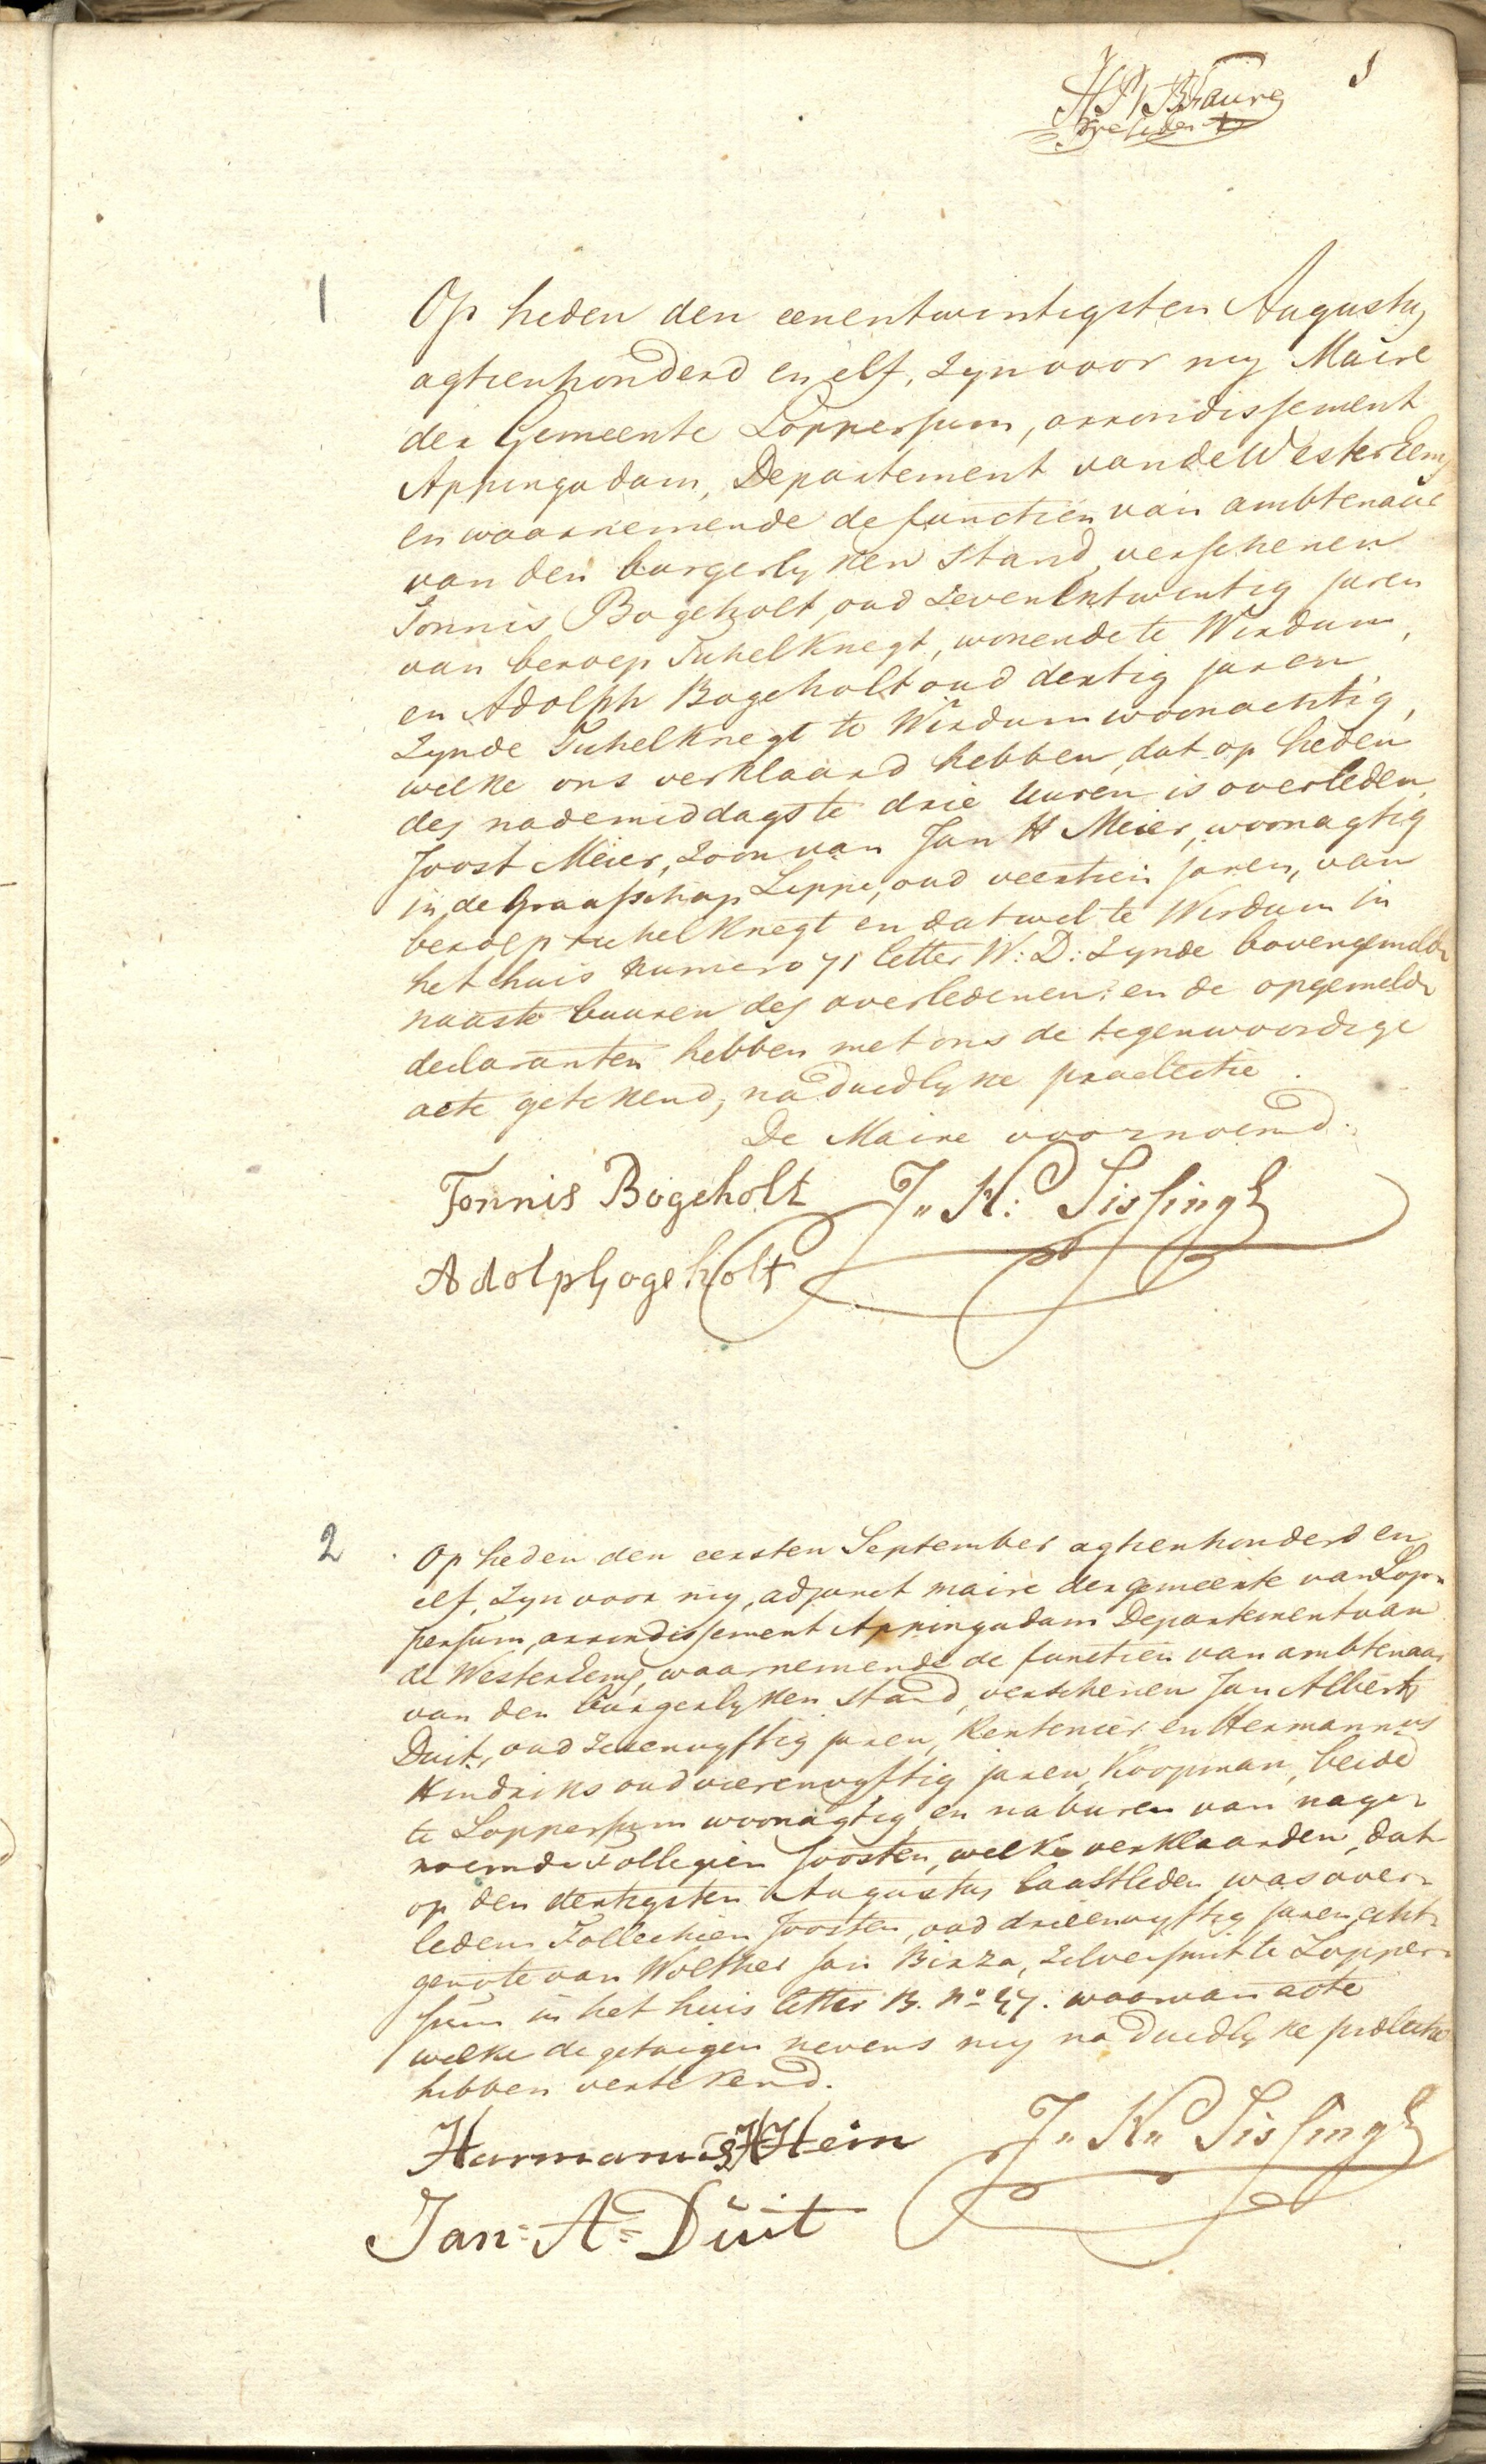 1
1
Op heden den eenentwintigsten Augustus
agtienhonderd en elf, zyn voor my Maire
der Gemeente Loppersum, arrondissement
Appingadam, Departement van de Wester Eems
en waarnemende de functien van ambtenaar
van den burgerlyken Stand, verschenen
Tonnis Bogeholt, oud zevenentwintig jaren
van beroep Tichelknegt, wonende te Wirdum,
en Adolph Bogeholt oud dertig jaren
zynde Tichelknegt te Wirdum woonachtig,
welke ons verklaard hebben, dat op heden
des nademiddags te drie uuren is overleden,
Joost Meier, zoon van Jan H Meier, woonagtig
in de Graafschap Lippe, oud veertien jaren, van
beroep tichelknegt en dat wel te Wirdum in
het huis numero 71 letter W: D: zynde bovengemelde
naaste buuren des overledenen: en de opgemelde
declaranten hebben met ons de tegenwoordige
acte getekend, na duidlyke praelectie.
De Maire voornoemd.
Tonnis Bogeholt J. K: Sissingh
Adolph Bogeholt
2
Op heden den eersten September agtienhonderd en
elf, zyn voor my, adjunct maire der gemeente van Lop-
persum, arrondissement Appingadam Departement van
de Wester Eems, waarnemende de functien van ambtenaar
van den burgerlyken stand, verschenen Jan Alberts
Duit, oud zevenvyftig jaren, Rentenier, en Hermannus
Hindriks oud vierenvyftig jaren, Koopman, beide
te Loppersum woonagtig, en naburen van nage-
noemde Follegien Joosten, welke verklaarden, dat
op den dertigsten Augustus laastleden was over-
leden Follechien Joosten, oud drieenvyftig jaren, echt-
genote van Wolther Jan Birza, zilversmit te Lopper-
sum in het huis letter B. No 47. waarvan acte
welke de getuigen nevens my na duidlyke prolectie
hebben vertekend.
Harmannus H Hein J. K. Sissingh
Jan A Duit